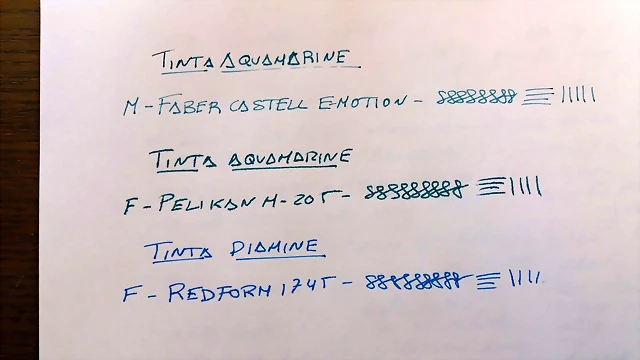 TINTA AQUAMARINE
M - FABER CASTELL E-MOTION -
TINTA AQUAMARINE
F - PELIKAN M-205 -
TINTA DIAMINE
F - REDFORM 1745 -